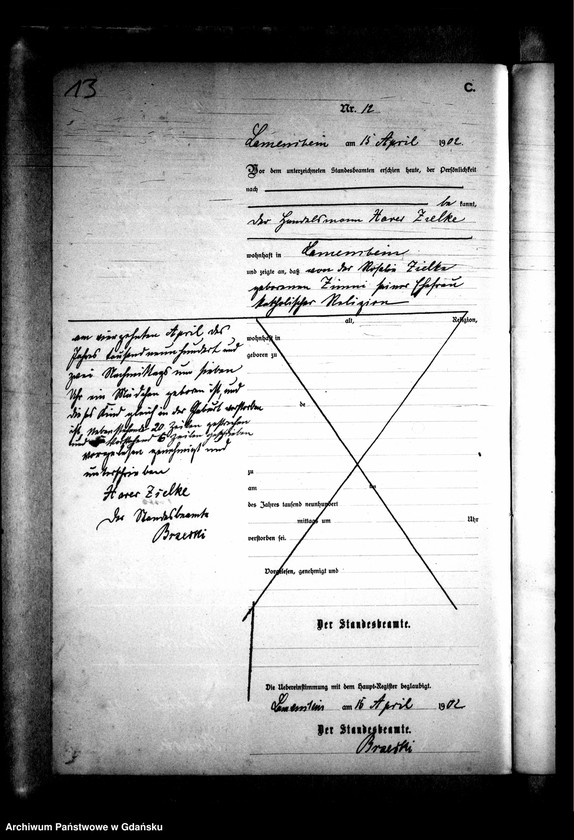 13
C.
Nr. 12
Lemenstein am 15 April 1902.
Vor dem unterzeichneten Standesbeamten erschien heute, der Persönlichkeit
nach
be kannt,
der Handelsmann Xaver Zielke
wohnhaft in Lemenstein
und zeigte an, daß von der Rosalie Zielke
geborenen Zimni seiner Ehefrau
katholischer Religion
alt, Religion,
wohnhaft in
geboren zu
am vierzehnten April des
Jahres tausend neunhundert und
zwei Nachmittags um sieben
Uhr ein Mädchen geboren ist, und
dieses Kind gleich in der Geburt verstorben
ist, Nebenstehende 20 Zeilen gestrichen
und Vorstehend 6 Zeilen geschrieben
vorgelesen genehmigt und
unterschrieben
Xaver Zielke
Der Standesbeamte
Braeski
de
zu
am
des Jahres tausend neunhundert
mittags um Uhr
verstorben sei.
Vorgelesen, genehmigt und
Der Standesbeamte.
Die Uebereinstimmung mit dem Haupt-Register beglaubigt.
Lemenstein am 16 April 1902
Der Standesbeamte.
Braeski
Archiwum Państwowe w Gdańsku